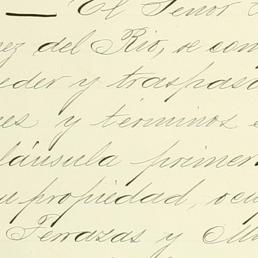 — El Señor
ez del Rio, se com
eder y traspasa
es y términos e
láusula primer
u propiedad, ocu
Terrazas y Mu